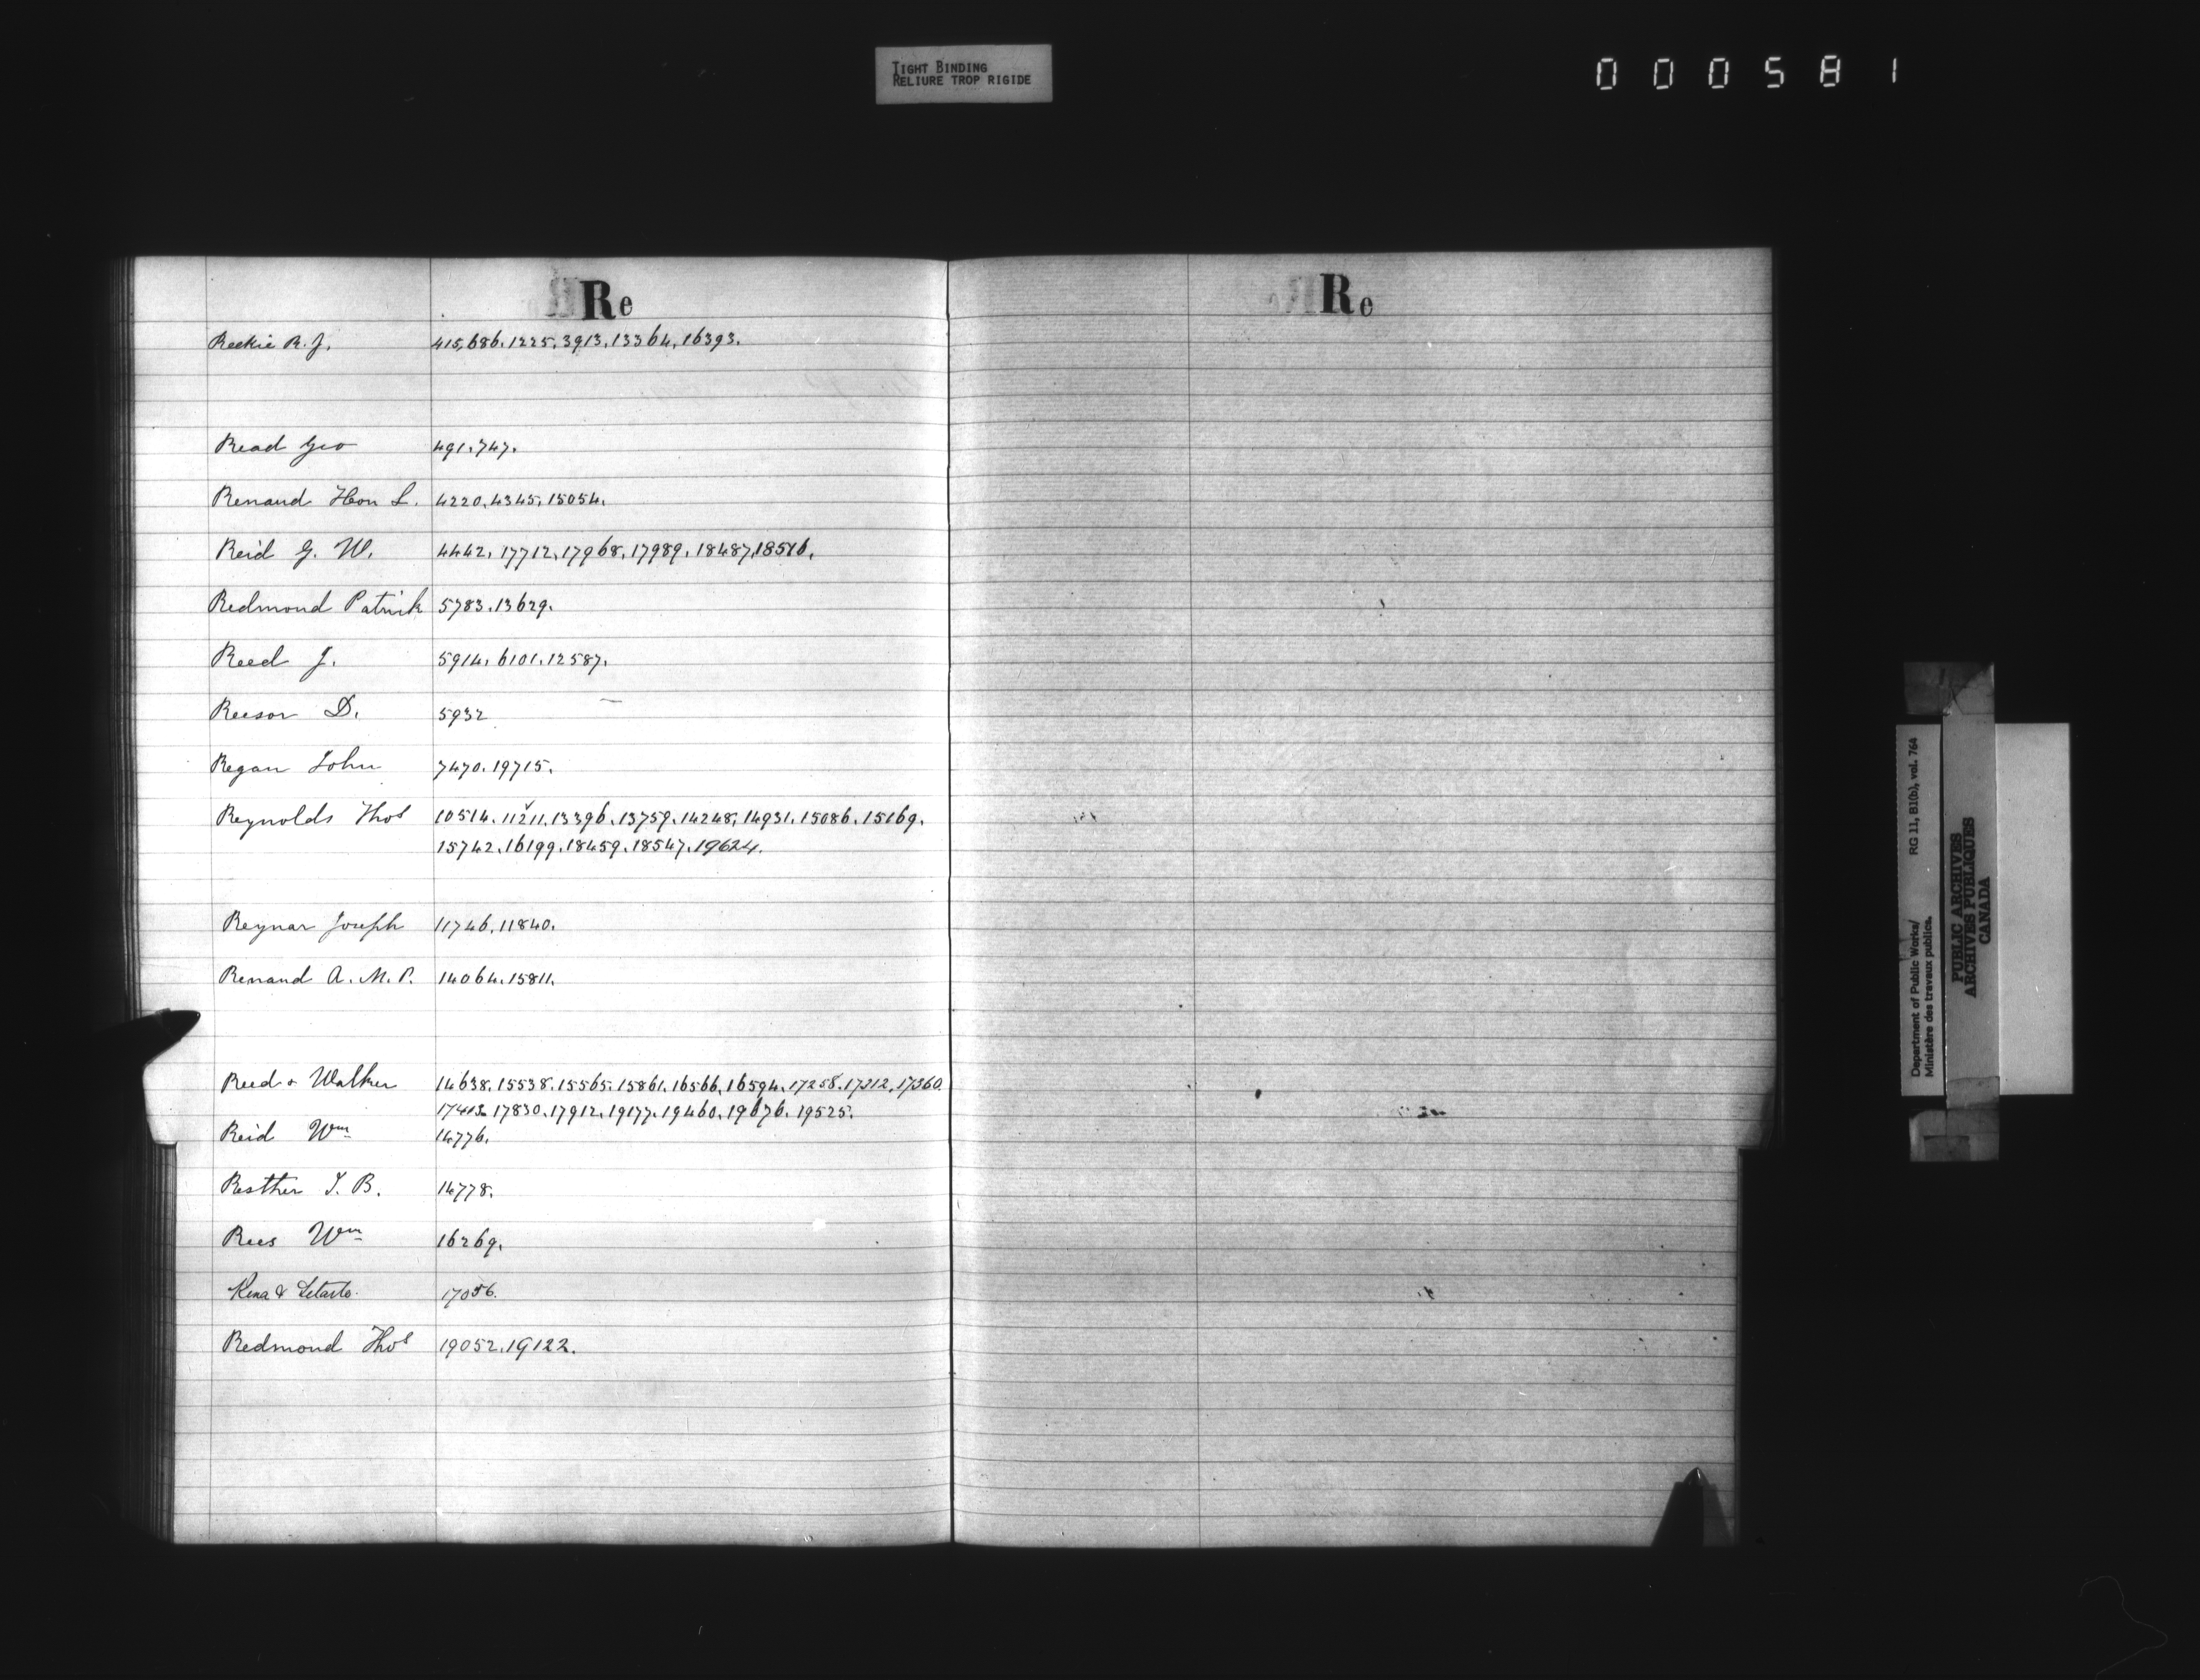 TIGHT BINDING
RELIURE TROP RIGIDE
000581
Re
Reekie R. J. 415, 686. 1225. 3913. 13364. 16393.
Read Geo 491. 747.
Renaud Hon L. 4220. 4345. 15054.
Reid G. W. 4442. 17712. 17968. 17989. 18487. 18516.
Redmond Patrick 5783. 13629.
Reed J. 5914. 6101. 12587.
Reesor D. 5932
Regan John 7470. 19715.
Reynolds Thos 10514. 11211. 13396. 13759. 14248. 14931. 15086. 15169.
15742. 16199. 18459. 18547. 19624.
Reynar Joseph 11746. 11840.
Renaud A. M. P. 14064. 15811.
Reed & Walker 14638. 15538. 15565. 15861. 16566. 16594. 17258. 17312. 17360.
17413. 17830. 17912. 19177. 19460. 19676. 19525.
Reid Wm 14776.
Resther J. B. 14778.
Rees Wm 16269.
Rena & Letarte. 17056.
Redmond Thos 19052. 19122.
Re
Department of Public Works/ RG 11, B1(b), vol. 764
Ministère des travaux publics.
PUBLIC ARCHIVES
ARCHIVES PUBLIQUES
CANADA